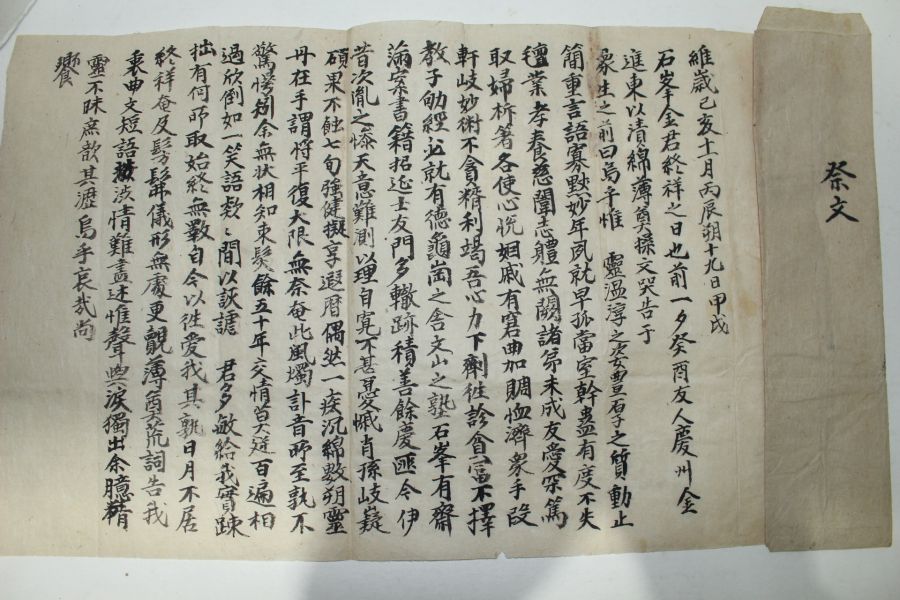 祭文
維歲己亥十月丙辰朔十九日甲戌
石峯金君終祥之日也前一夕癸酉友人慶州金
進東以漬綿薄奠操文哭告于
象生之前曰烏乎惟 靈溫淳之姿豊厚之質動止
簡重言語寡默妙年夙就早孤當室幹蠱有度不失
氊業孝養慈闈志體無闕諸弟未成友愛罙篤
取婦析箸各使心悅姻戚有窘曲加賙恤濟衆手段
軒岐妙術不會精利竭吾心力下劑徃診貧富不擇
敎子劬經迋就有德龜崗之舍文山之塾石峯有齋
滿案書籍招延士友門多轍跡積善餘慶匪今伊
昔次胤之慘天意難測以理自寬不甚憂慽肖孫岐嶷
碩果不蝕七旬強健擬享遐曆偶然一疾沉綿數朔靈
丹在手謂將平復大限無奈奄此風燭訃音所至孰不
驚愕矧余無狀相知束髮餘五十年交情莫逆百遍相
過欣倒如一笑語款款間以詼謔 君多敏給我實踈
拙有何所取始終無斁自今以徃愛我其孰日月不居
終祥奄及髣髴儀形無處更覿薄奠荒詞告我
衷曲文短語澁情難盡述惟聲與淚獨出余臆精
靈不昧庶歆其瀝烏乎哀哉尚
饗